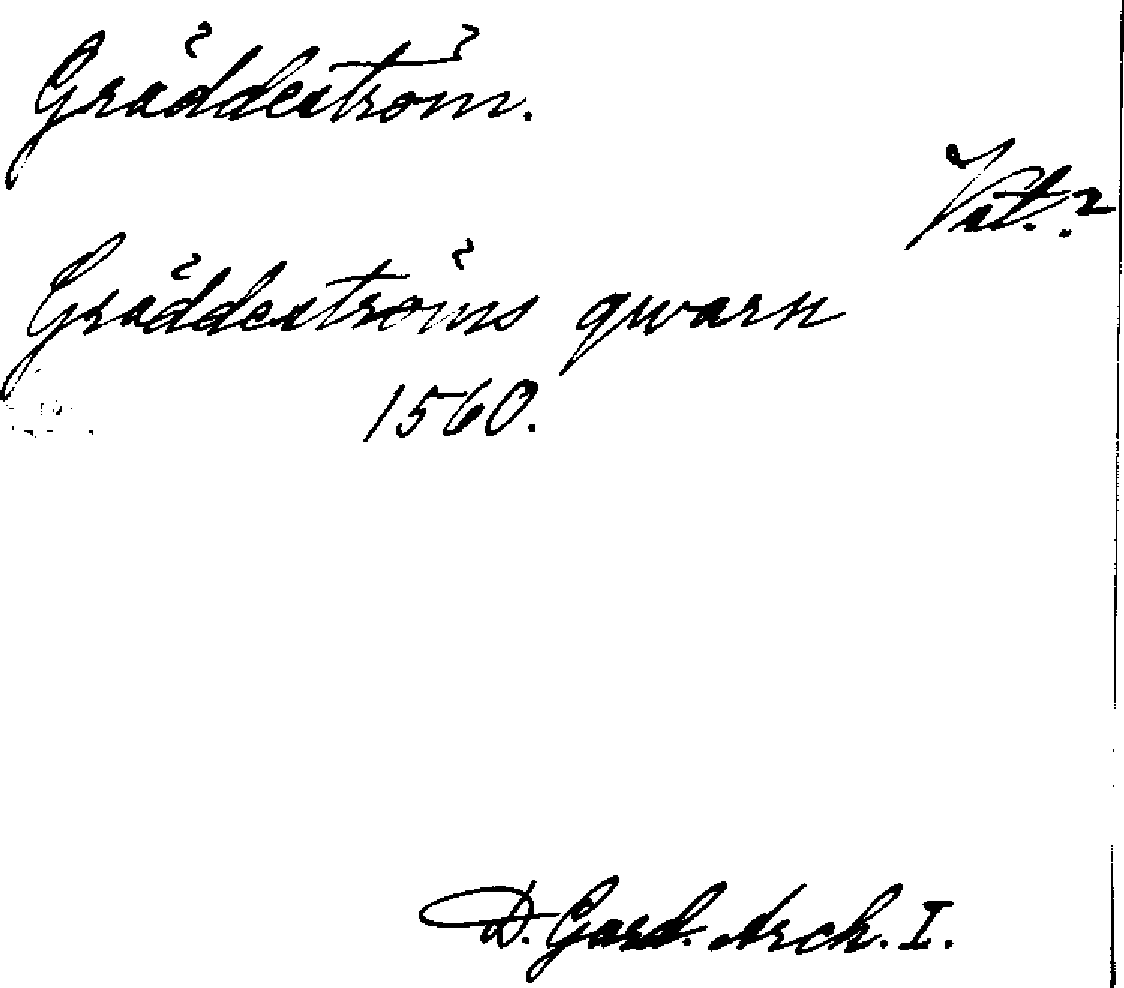 Gräddeström.
Vät.?
Gräddeströms qwarn
1560.
D. Gard. Arch. I.